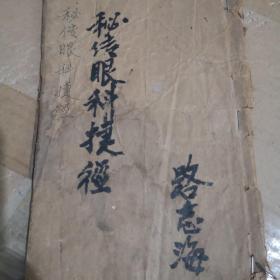 秘传眼科捷徑
路志海
秘传眼科捷径